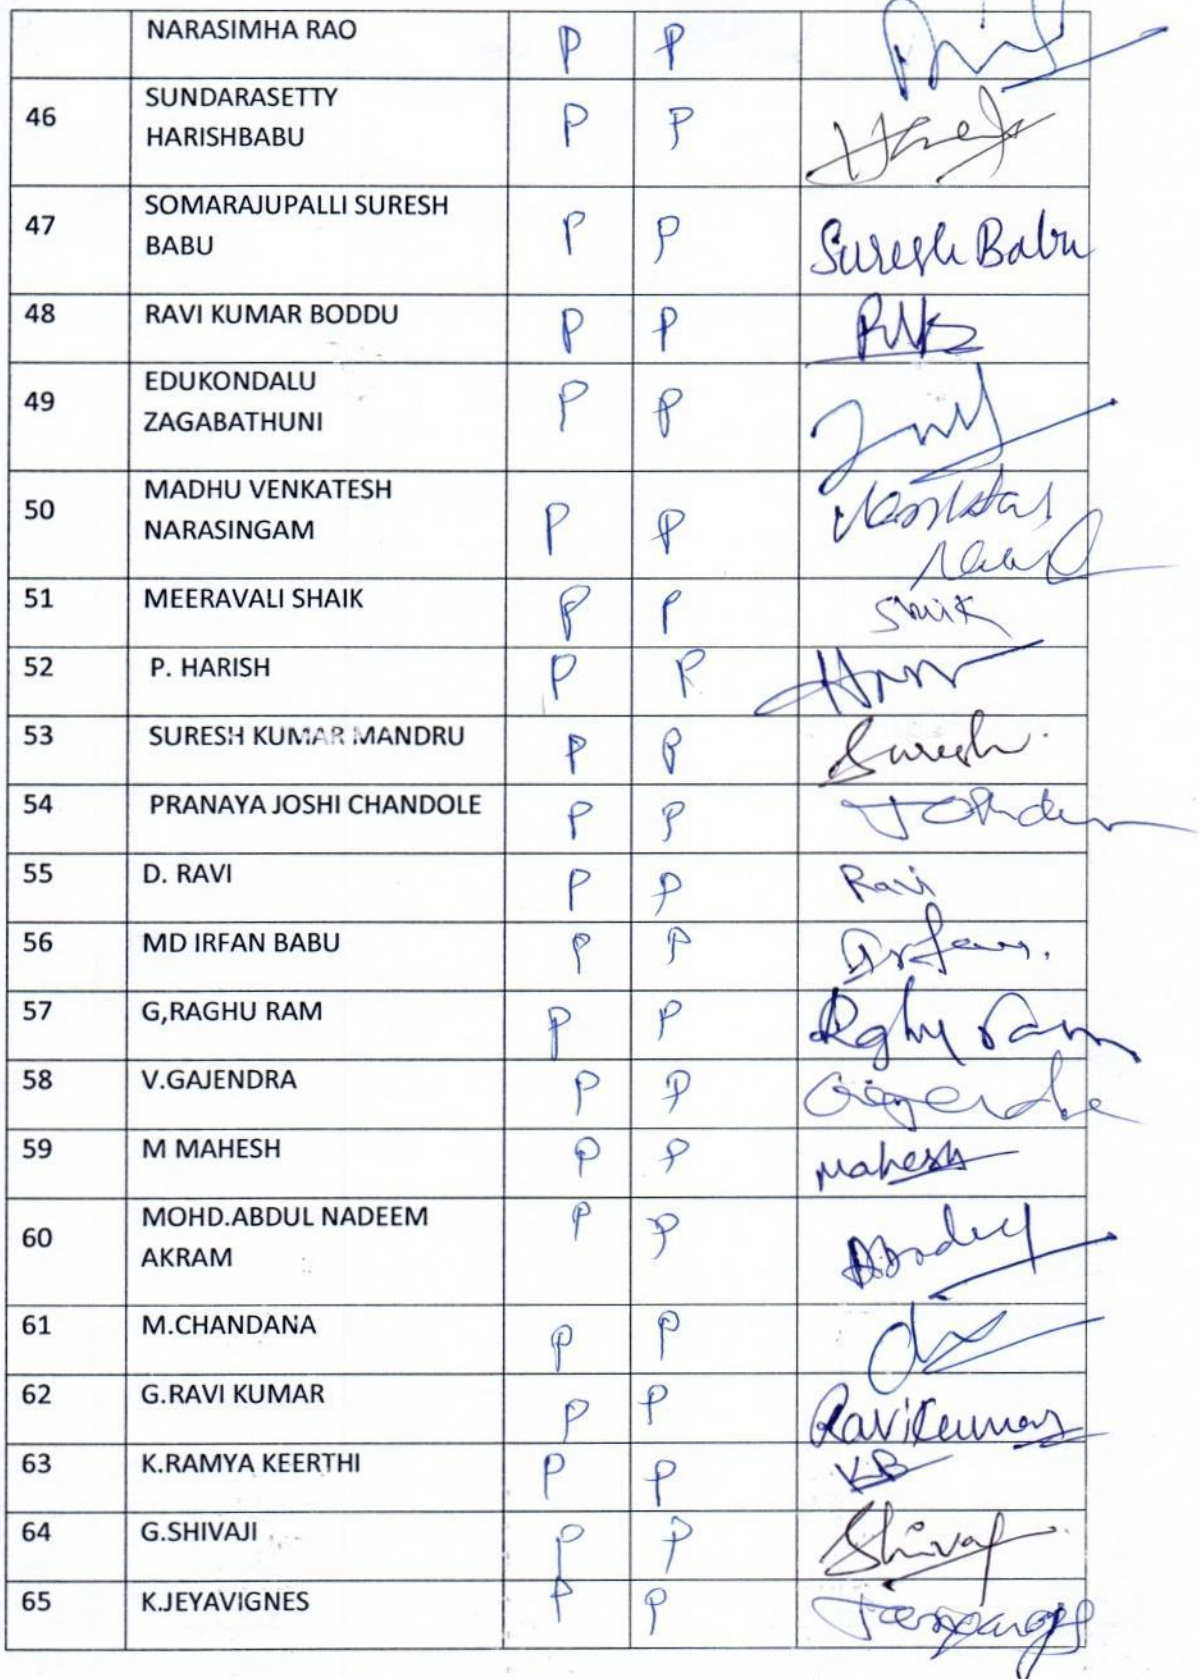 NARASIMHA RAO P P
46 SUNDARASETTY HARISHBABU P P
47 SOMARAJUPALLI SURESH BABU P P Suresh Babu
48 RAVI KUMAR BODDU P P
49 EDUKONDALU ZAGABATHUNI P P
50 MADHU VENKATESH NARASINGAM P P
51 MEERAVALI SHAIK P P Shaik
52 P. HARISH P P
53 SURESH KUMAR MANDRU P P Suresh
54 PRANAYA JOSHI CHANDOLE P P
55 D. RAVI P P Ravi
56 MD IRFAN BABU P P Irfan.
57 G,RAGHU RAM P P Rghu ram
58 V.GAJENDRA P P
59 M MAHESH P P Mahesh
60 MOHD.ABDUL NADEEM AKRAM P P
61 M.CHANDANA P P
62 G.RAVI KUMAR P P Ravikumar
63 K.RAMYA KEERTHI P P
64 G.SHIVAJI P P
65 K.JEYAVIGNES P P